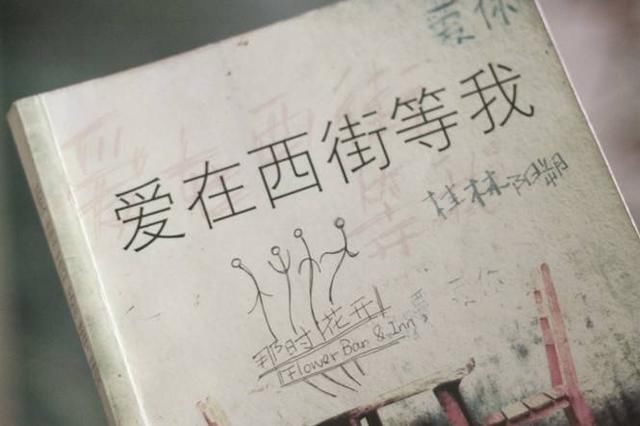 爱你
爱在西街等我
桂林·阳朔
那时花开
Flower Bar & Inn
爱你